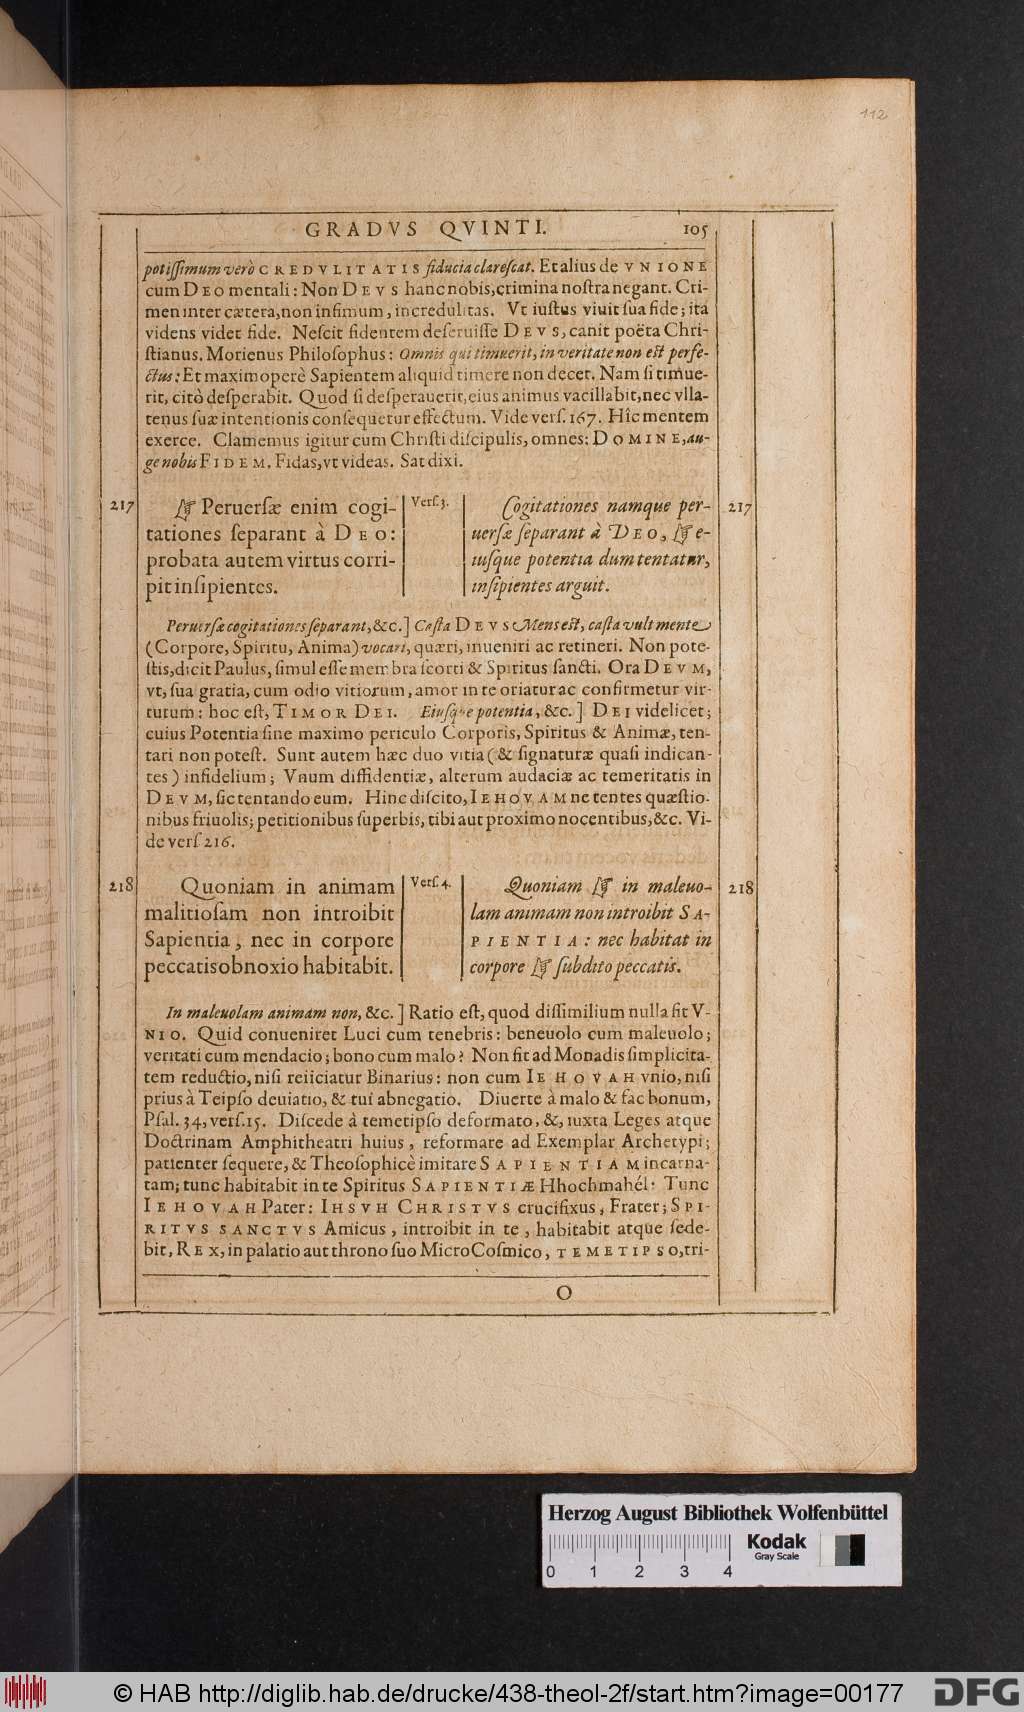 112
GRADVS QVINTI. 105
potiſſimum verò CREDVLITATIS fiducia clareſcat. Et alius de VNIONE
cum DEO mentali: Non DEVS hanc nobis, crimina noſtra negant. Cri-
men inter cætera, non infimum, incredulitas. Vt iuſtus viuit ſua fide; ita
videns videt fide. Neſcit fidentem deſeruiſſe DEVS, canit poëta Chri-
ſtianus. Morienus Philoſophus: Omnis qui timuerit, in veritate non eſt perfe-
ctus: Et maximoperè Sapientem aliquid timere non decet. Nam ſi timue-
rit, citò deſperabit. Quod ſi deſperauerit, eius animus vacillabit, nec vlla-
tenus ſuæ intentionis conſequetur effectum. Vide verſ. 167. Hîc mentem
exerce. Clamemus igitur cum Chriſti diſcipulis, omnes: DOMINE, au-
ge nobis FIDEM. Fidas, vt videas. Sat dixi.
217
☞ Peruerſæ enim cogi-
tationes ſeparant à DEO:
probata autem virtus corri-
pit inſipientes.
Verſ. 3.
Cogitationes namque per-
uerſæ ſeparant à DEO, ☞ e-
iuſque potentia dum tentatur,
inſipientes arguit.
217
Peruerſæ cogitationes ſeparant, &c.] Caſta DEVS Mens eſt, caſta vult mente
(Corpore, Spiritu, Anima) vocari, quæri, inueniri ac retineri. Non pote-
ſtis, dicit Paulus, ſimul eſſe membra ſcorti & Spiritus ſancti. Ora DEVM,
vt, ſua gratia, cum odio vitiorum, amor in te oriatur ac confirmetur vir-
tutum: hoc eſt, TIMOR DEI. Eiuſque potentia, &c.] DEI videlicet;
cuius Potentia ſine maximo periculo Corporis, Spiritus & Animæ, ten-
tari non poteſt. Sunt autem hæc duo vitia (& ſignaturæ quaſi indican-
tes) infidelium; Vnum diffidentiæ, alterum audaciæ ac temeritatis in
DEVM, ſic tentando eum. Hinc diſcito, IEHOVAM ne tentes quæſtio-
nibus friuolis; petitionibus ſuperbis, tibi aut proximo nocentibus, &c. Vi-
de verſ 216.
218
Quoniam in animam
malitioſam non introibit
Sapientia, nec in corpore
peccatis obnoxio habitabit.
Verſ. 4.
Quoniam ☞ in maleuo-
lam animam non introibit SA-
PIENTIA: nec habitat in
corpore ☞ ſubdito peccatis.
218
In maleuolam animam non, &c.] Ratio eſt, quod diſſimilium nulla fit V-
NIO. Quid conueniret Luci cum tenebris: beneuolo cum maleuolo;
veritati cum mendacio; bono cum malo? Non fit ad Monadis ſimplicita-
tem reductio, niſi reiiciatur Binarius: non cum IEHOVAH vnio, niſi
prius à Teipſo deuiatio, & tui abnegatio. Diuerte à malo & fac bonum,
Pſal. 34, verſ. 15. Diſcede à temetipſo deformato, &, iuxta Leges atque
Doctrinam Amphitheatri huius, reformare ad Exemplar Archetypi;
patienter ſequere, & Theoſophicè imitare SAPIENTIAM incarna-
tam; tunc habitabit in te Spiritus SAPIENTIÆ Hhochmahél: Tunc
IEHOVAH Pater: IHSVH CHRISTVS crucifixus, Frater; SPI-
RITVS SANCTVS Amicus, introibit in te, habitabit atque ſede-
bit, REX, in palatio aut throno ſuo MicroCoſmico, TEMETIPSO, tri-
O
Herzog August Bibliothek Wolfenbüttel
0 1 2 3 4
Kodak
Gray Scale
© HAB http://diglib.hab.de/drucke/438-theol-2f/start.htm?image=00177
DFG